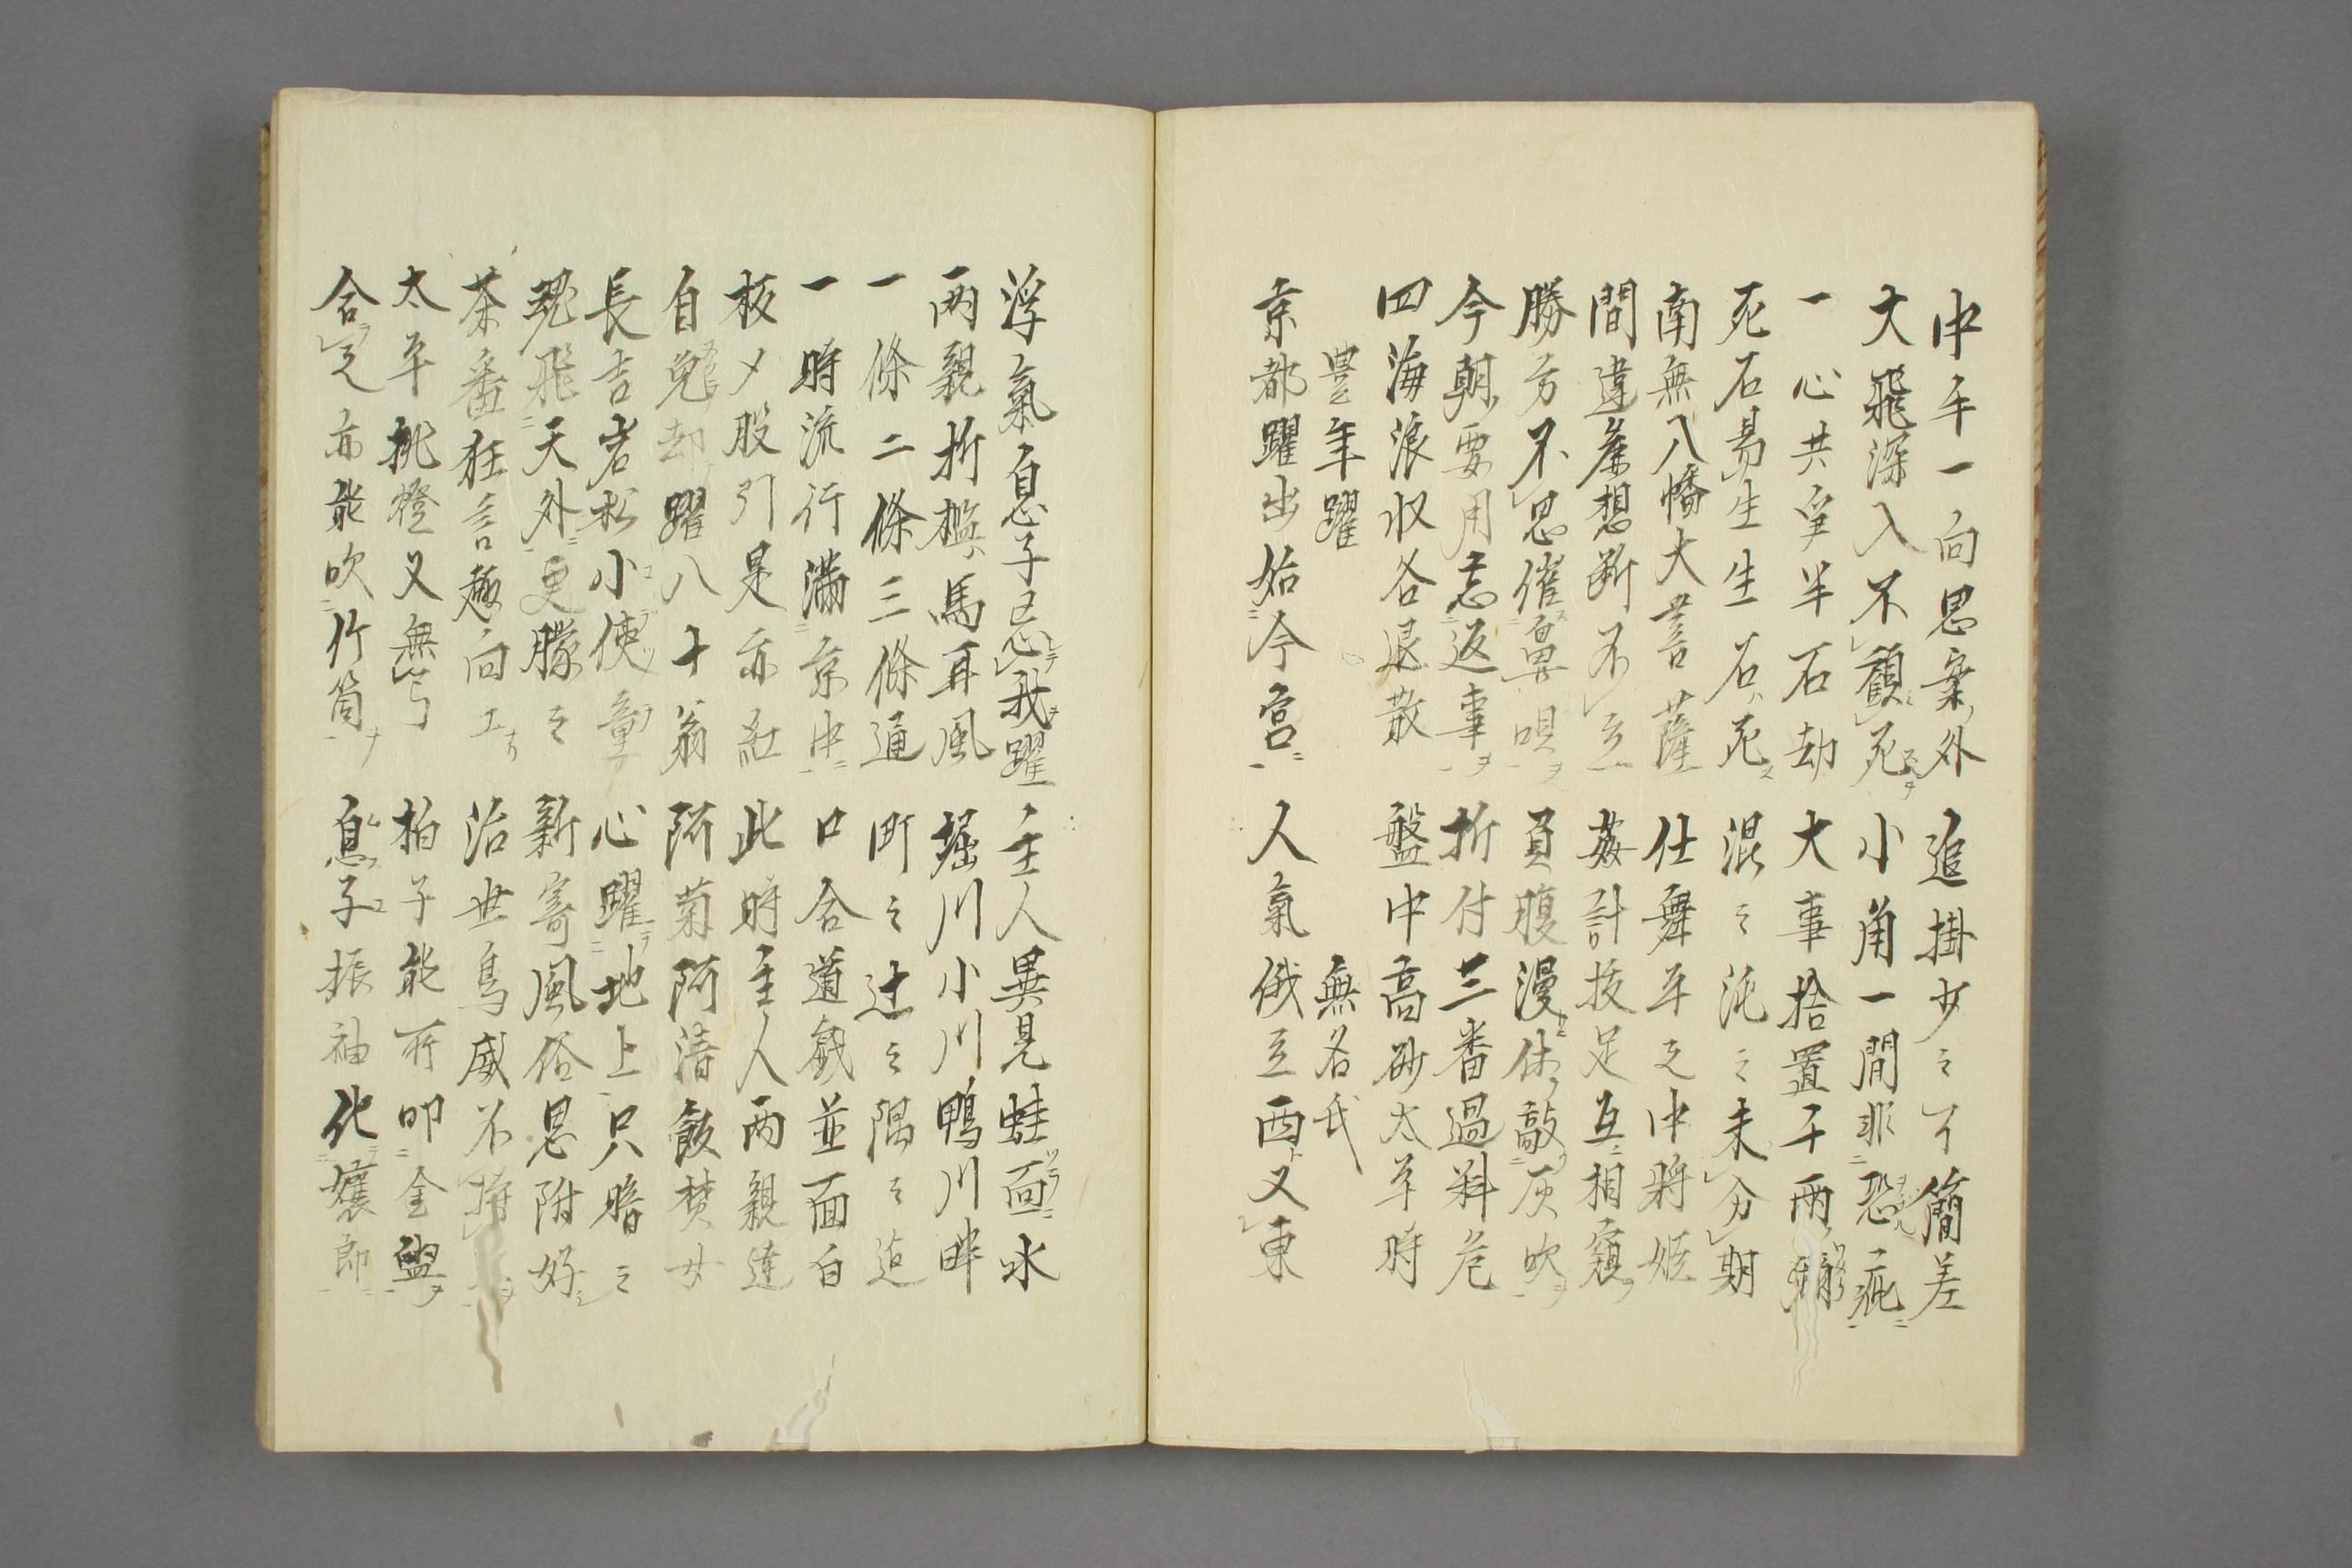 中手一向思案外　追掛少々了簡差
大飛深入不顧死　小角一間非恐疵
一心共寧半石劫　大事捨置千両
死石易生生石死　混々沌々未分期
南無八幡大菩薩　仕舞平支中将姫
間違麁想断不立　姦計抜足互相窺
勝方不思催鼻唄　負腹漫休敲灰吹
今朝要用忘返事　折付三番過料危
四海浪収各退散　盤中高砂太平時
豊年躍　無名氏
京都躍出始今宮　人氣俄立西又東
浮氣息子忘我躍　主人異見蛙面水
両親折檻馬耳風　堀川小川鴨川畔
一條二條三條通　町々辻々隅々迄
一時流行満京中　口合道戯並面白
板〆股引是亦紅　此時主人両親達
自兔却躍八十翁　阿菊阿清飯焚女
長吉岩松小使童　心躍地上只暗々
魂飛天外更朦々　新寄風俗思附好
茶番狂言趣向工　治世鳥威不持
太平挑燈又無弓　拍子能所叩金盥
合定亦能吹竹筒　息子振袖化孃郎